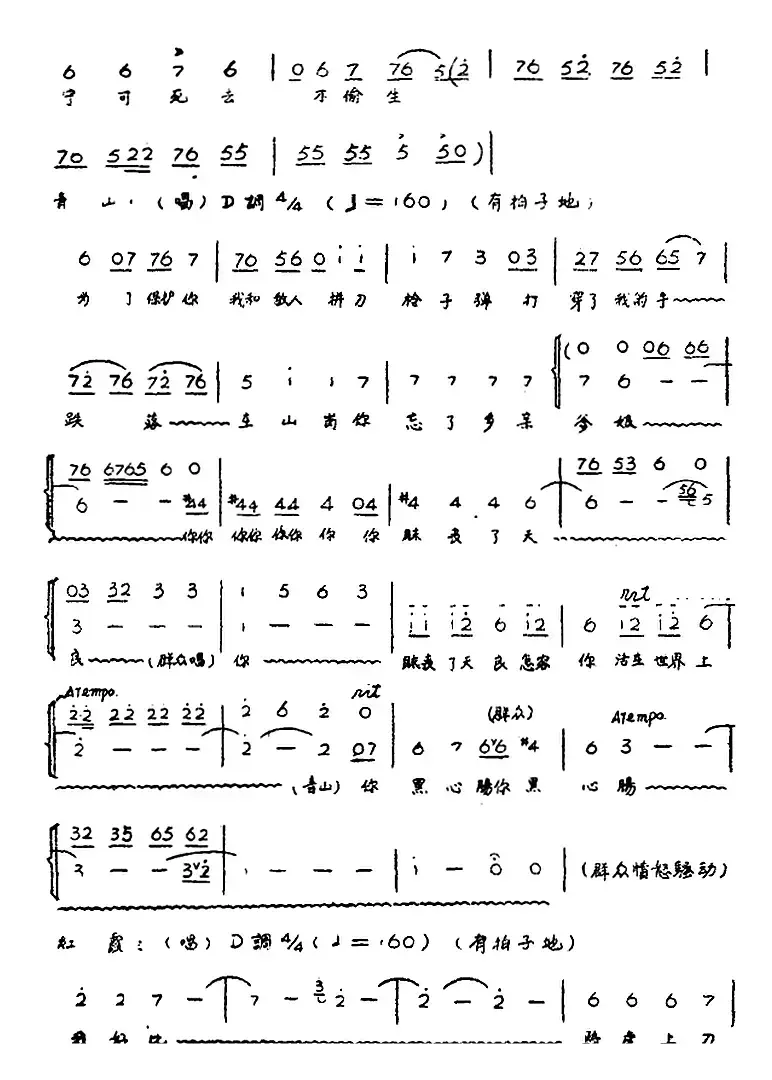 6 6 7 6 | 0 6 7 76 5(2 | 76 52 76 52 |
宁 可 死 去 不 偷 生
76 522 76 55 | 55 55 5 50 ) |
青 山：（唱）D調4/4（♩=160）（有拍子地）
6 07 76 7 | 76 56 0 i i | i 7 3 03 | 27 56 65 7
为 了 保护 你 我和 敌人 拼刀 枪 子 弹 打 穿了 我的 手
(0 0 06 66
72 76 72 76 | 5 i i 7 | 7 7 7 7 | 7 6 - -
跌 落 在 山 岗 你 忘 了 多 亲 爹 娘
76 6765 6 0 | 76 53 6 0
6 - - #44 | #44 44 4 04 | #4 4 4 6 | 6 - - 565
你你 你你 你你 你 你 昧 丧 了 天
03 32 3 3 | i 5 6 3 | rit
3 - - - | i - - - | ii i2 6 i2 | 6 i2 i2 6
良 （群众唱） 你 昧丧 了天 良 怎容 你 活在 世界 上
ATempo. rit
22 22 22 22 | 2 6 2 0 | （群众） ATempo.
2 - - - | 2 - 2 07 | 6 7 6ᵛ6 #4 | 6 3 - -
（青山） 你 黑 心 腸你 黑 心 腸
32 35 65 62
3 - - 3ᵛ2 | i - - - | i - 0 0 | （群众愔怒骚动）
紅 霞：（唱）D調4/4（♩=160）（有拍子地）
2 2 7 - | 7 - 3 2 - | 2 - 2 - | 6 6 6 7
好 比 上 刀